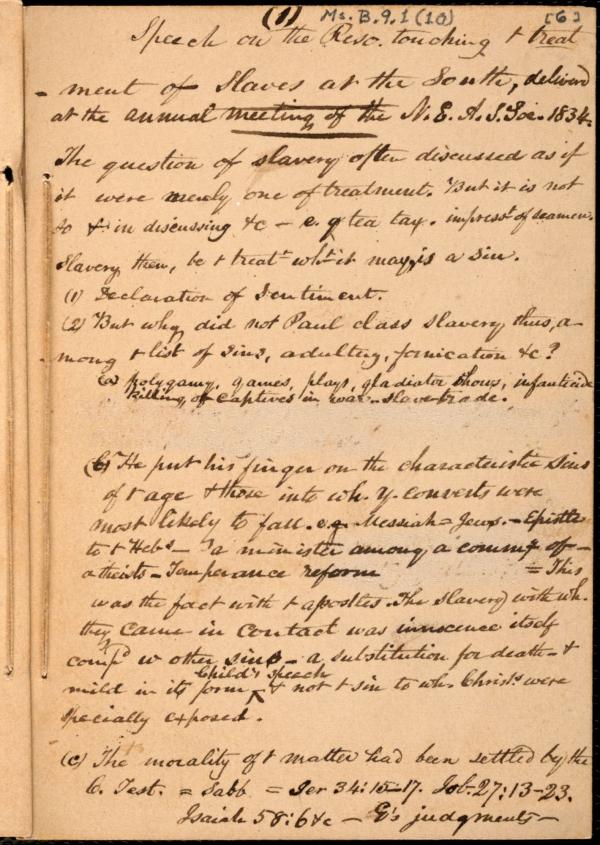 (1) Ms. B.9.1 (10) [6]
Speech on the Reso. touching t treat
ment of Slaves at the South, delivered
at the annual meeting of the N. E. A. S. Soc. 1834.
The question of slavery often discussed as if
it were merely one of treatment. But it is not
so & in discussing &c - e.g tea tax. impresst of seamen.
Slavery then, be t treatt wht it may, is a sin.
(1) Declaration of Sentiment.
(2) But why did not Paul class slavery thus, a-
mong t list of sins, adultery, fornication &c?
(a) polygamy, games, plays, gladiator shows, infanticide
killing of captives in war - slave trade.
(b) He put his finger on the characteristic sins
of t age & those into wh. y. converts were
most likely to fall. e.g. Messiah = Jews. - Epistle
to t Hebs - a minister among a commy of
atheists - Temperance reform = This
was the fact with t apostles. The slavery with wh.
they came in contact was innocence itself
compd w other sins - a substitution for death - &
Child's Speech
mild in its form - & not t sin to wh. Christs were
specially exposed.
(c) The morality of t matter had been settled by the
O. Test. = Sabb. = Jer 34:15-17. Job. 27:13-23.
Isaiah 58:6 &c - G's judgments -